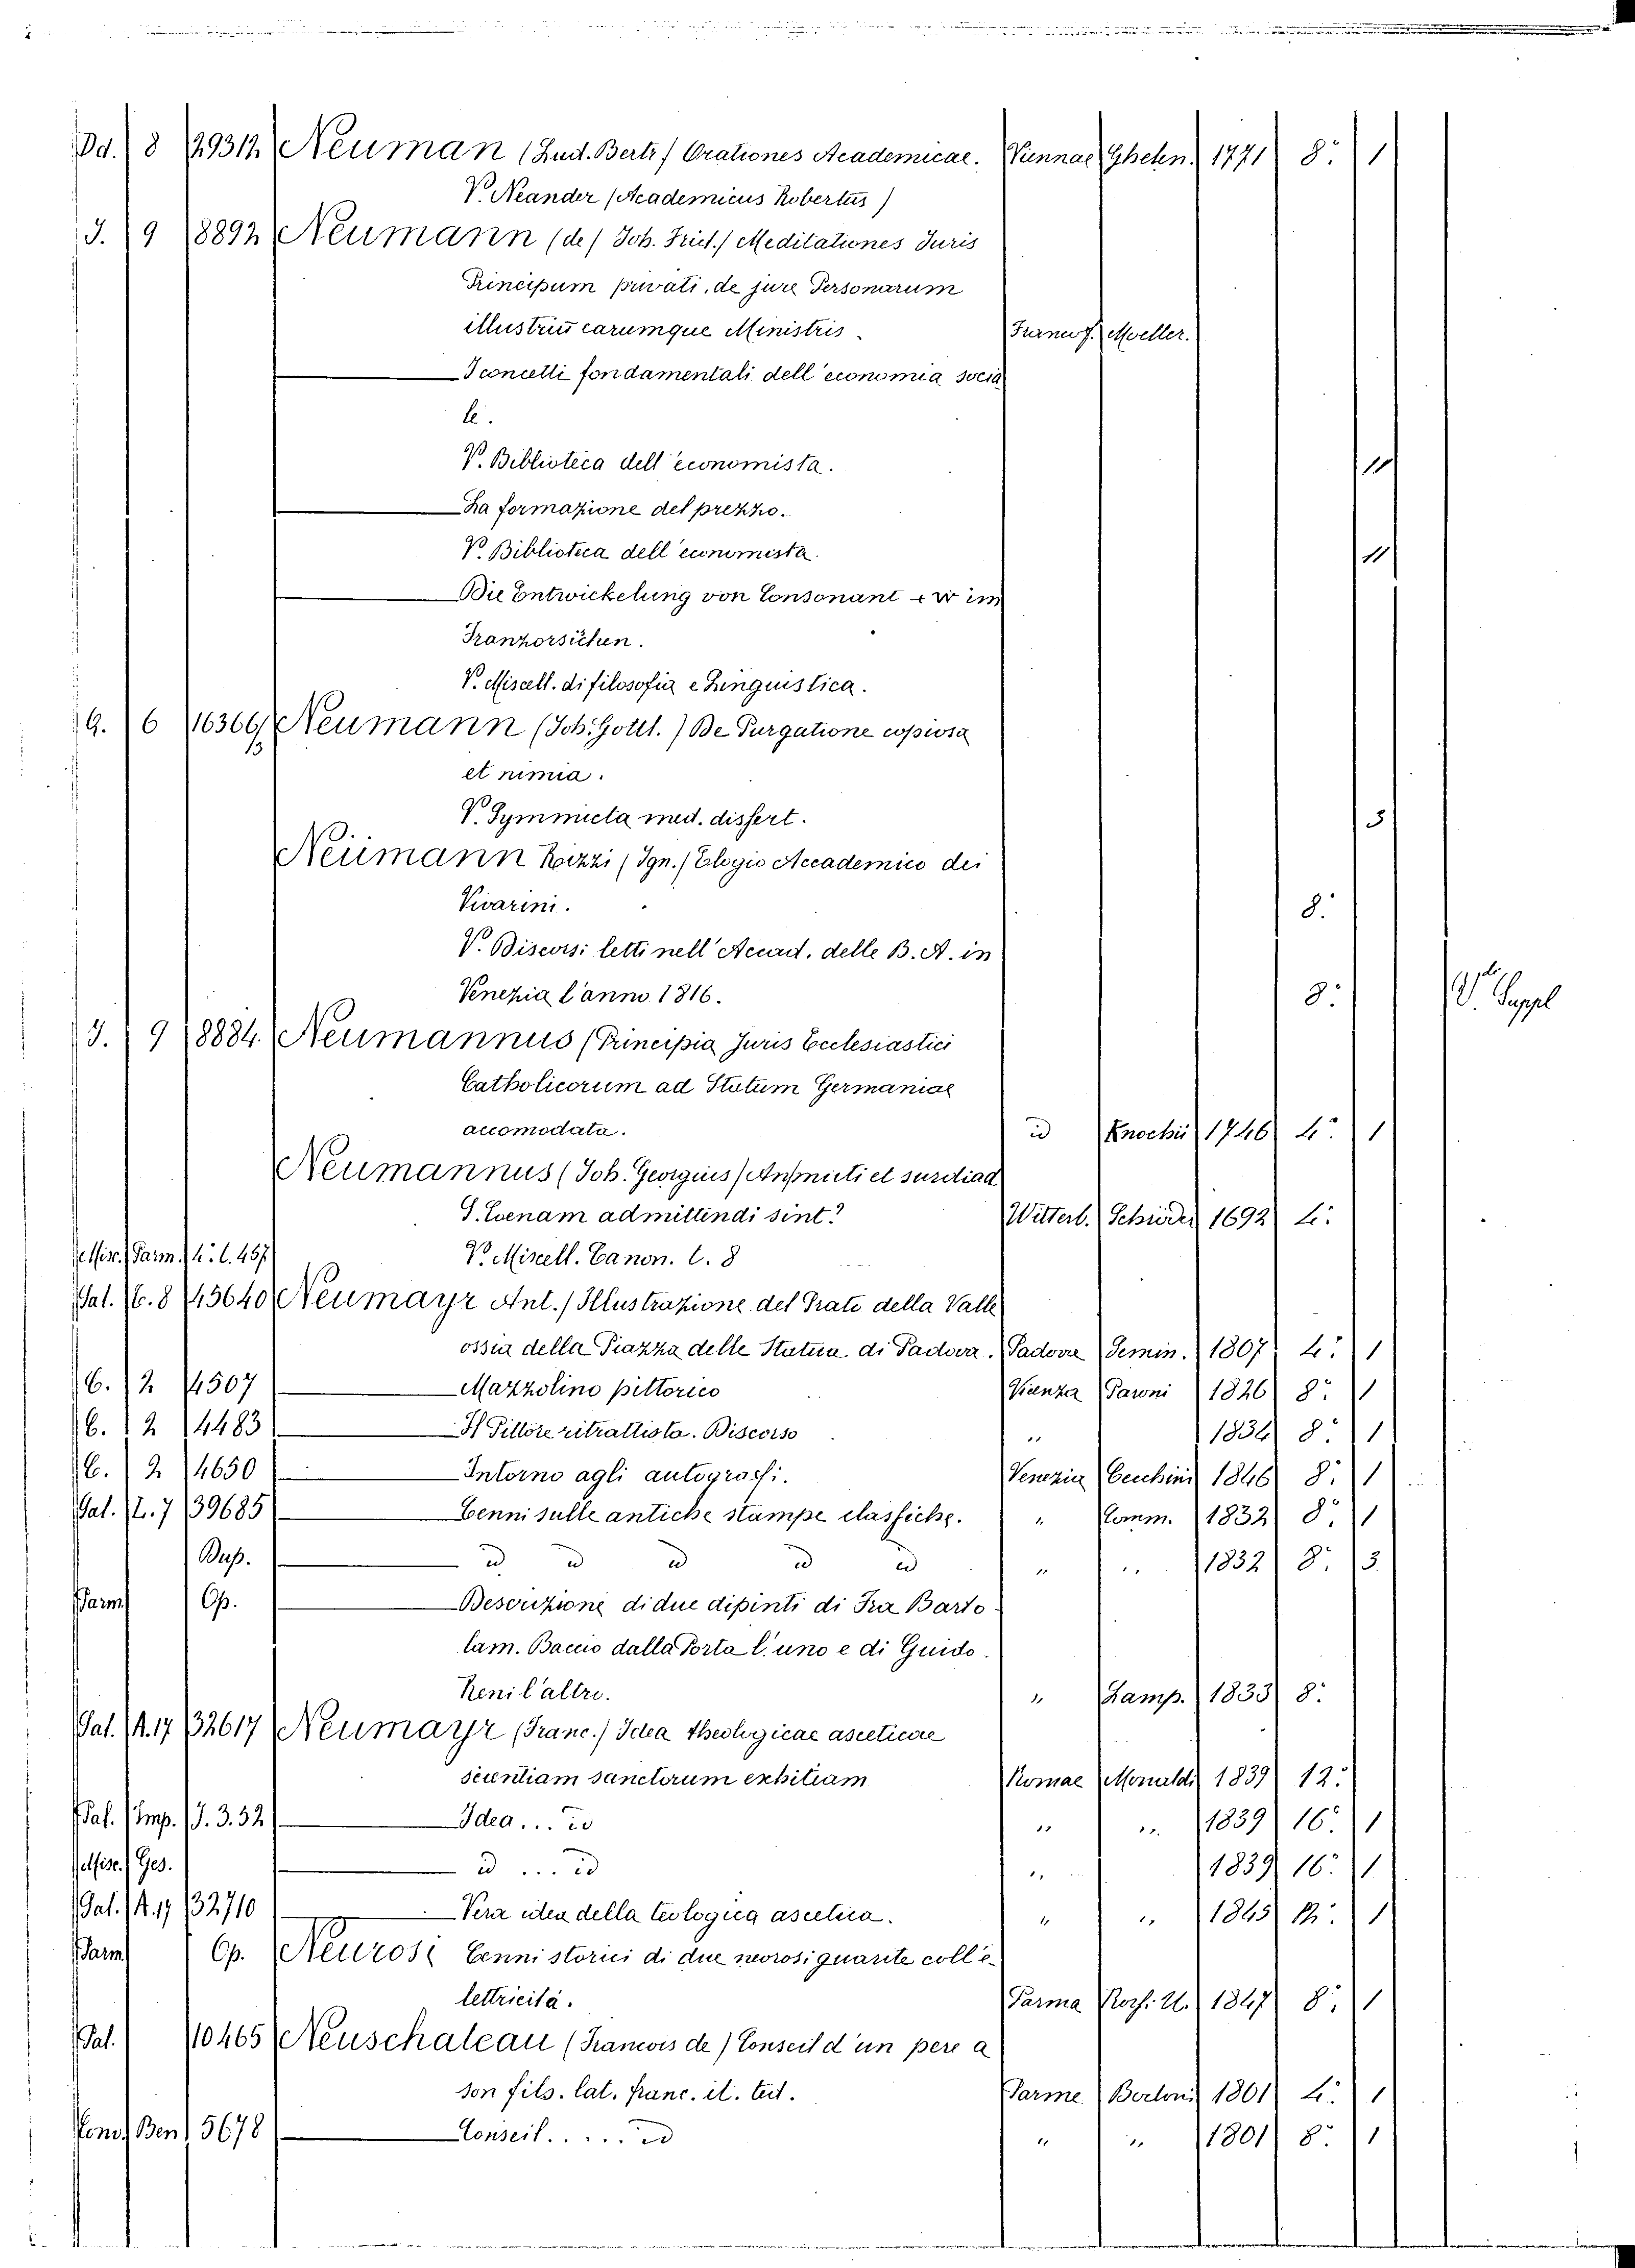 Dd. 8 29312 Neuman (Lud. Bertr.) Orationes Academicae. Viennae Ghelen. 1771 8.° 1
V. Neander (Academicus Robertus)
J. 9 8892 Neumann (de) Joh. Frid.) Meditationes Juris
Principum privati, de jure Personarum
illustriu earumque Ministris. Francof. Moeller.
I concetti fondamentali dell'economia socia
le.
V. Biblioteca dell'economista. 11
La formazione del prezzo.
V. Biblioteca dell'economista. 11
Die Entwickelung von Consonant + w im
V. Miscell. di filosofia e Linguistica.
G. 6 16366/13 Neumann (Joh. Gottl.) De Purgatione copiosa
et nimia.
V. Symmicta med. dissert. 5
Neümann Rizzi (Ign.) Elogio Accademico dei
Vivarini. 8.°
V. Discorsi letti nell'Accad. delle B. A. in
Venezia l'anno 1816. 8.° V. Suppl
J. 9 8884. Neumannus (Principia Juris Ecclesiastici
Catholicorum ad Statum Germaniae
accomodata. id Knochii 1746 4.° 1
Neumannus (Joh. Georgius) An muti et surdi ad
S. Coenam admittendi sint? Witterb. Schröder 1692 4.°
Misc. Parm. 4.° t. 457 V. Miscell. Canon. t. 8
Pal. C. 8 45640 Neumayr Ant.) Illustrazione del Prato della Valle
ossia della Piazza delle Statua di Padova. Padova Semin. 1807 4.° 1
C. 2 4507 Mazzolino pittorico Vicenza Paroni 1826 8.° 1
C. 2 4483 Il Pittore ritrattista. Discorso " 1834 8.° 1
C. 2 4650 Intorno agli autografi. Venezia Cecchini 1846 8.° 1
Pal. L. 7 39685 Cenni sulle antiche stampe classiche. " Comm. 1832 8.° 1
Dup. id id id id id " " 1832 8.° 3
Parm Op. Descrizione di due dipinti di Fra Barto
lam. Baccio dalla Porta l'uno e di Guido.
Reni l'altro. " Lamp. 1833 8.°
Pal. A. 17 32617 Neumayr (Franc.) Idea theologicae asceticae
scientiam sanctorum exhibiam Romae Monaldi 1839 12.°
Pal. Imp. J. 3. 32 Idea... id " " 1839 16.° 1
Misc. Ges. id ... id " 1839 16.° 1
Pal. A. 17 32710 Vera idea della teologica ascetica. " " 1845 12.° 1
Parm Op. Neurosi Cenni storici di due nevrosi guarite coll'e-
lettricità. Parma Ross. U. 1847 8.° 1
Pal. 10465 Neuschateau (Francois de) Conseil d'un pere a
son fils. lat. franc. it. ted. Parme Bodoni 1801 4.° 1
Fond. Ben 5678 Conseil..... id " " 1801 8.° 1